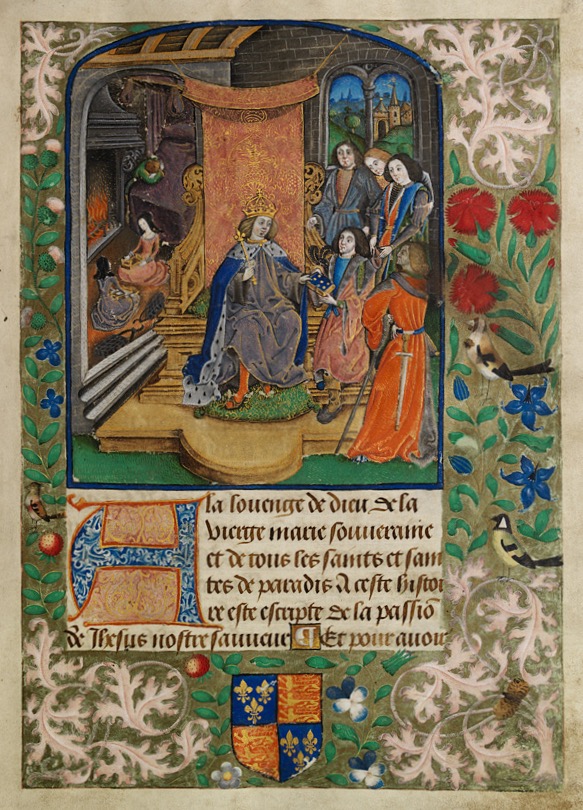 A la louenge de dieu de la
vierge marie souveraine
et de tous les saints et sain
tes de paradis A ceste histoi
re este escripte de la passiõ
de Jhesus nostre sauveur Et pour avoir